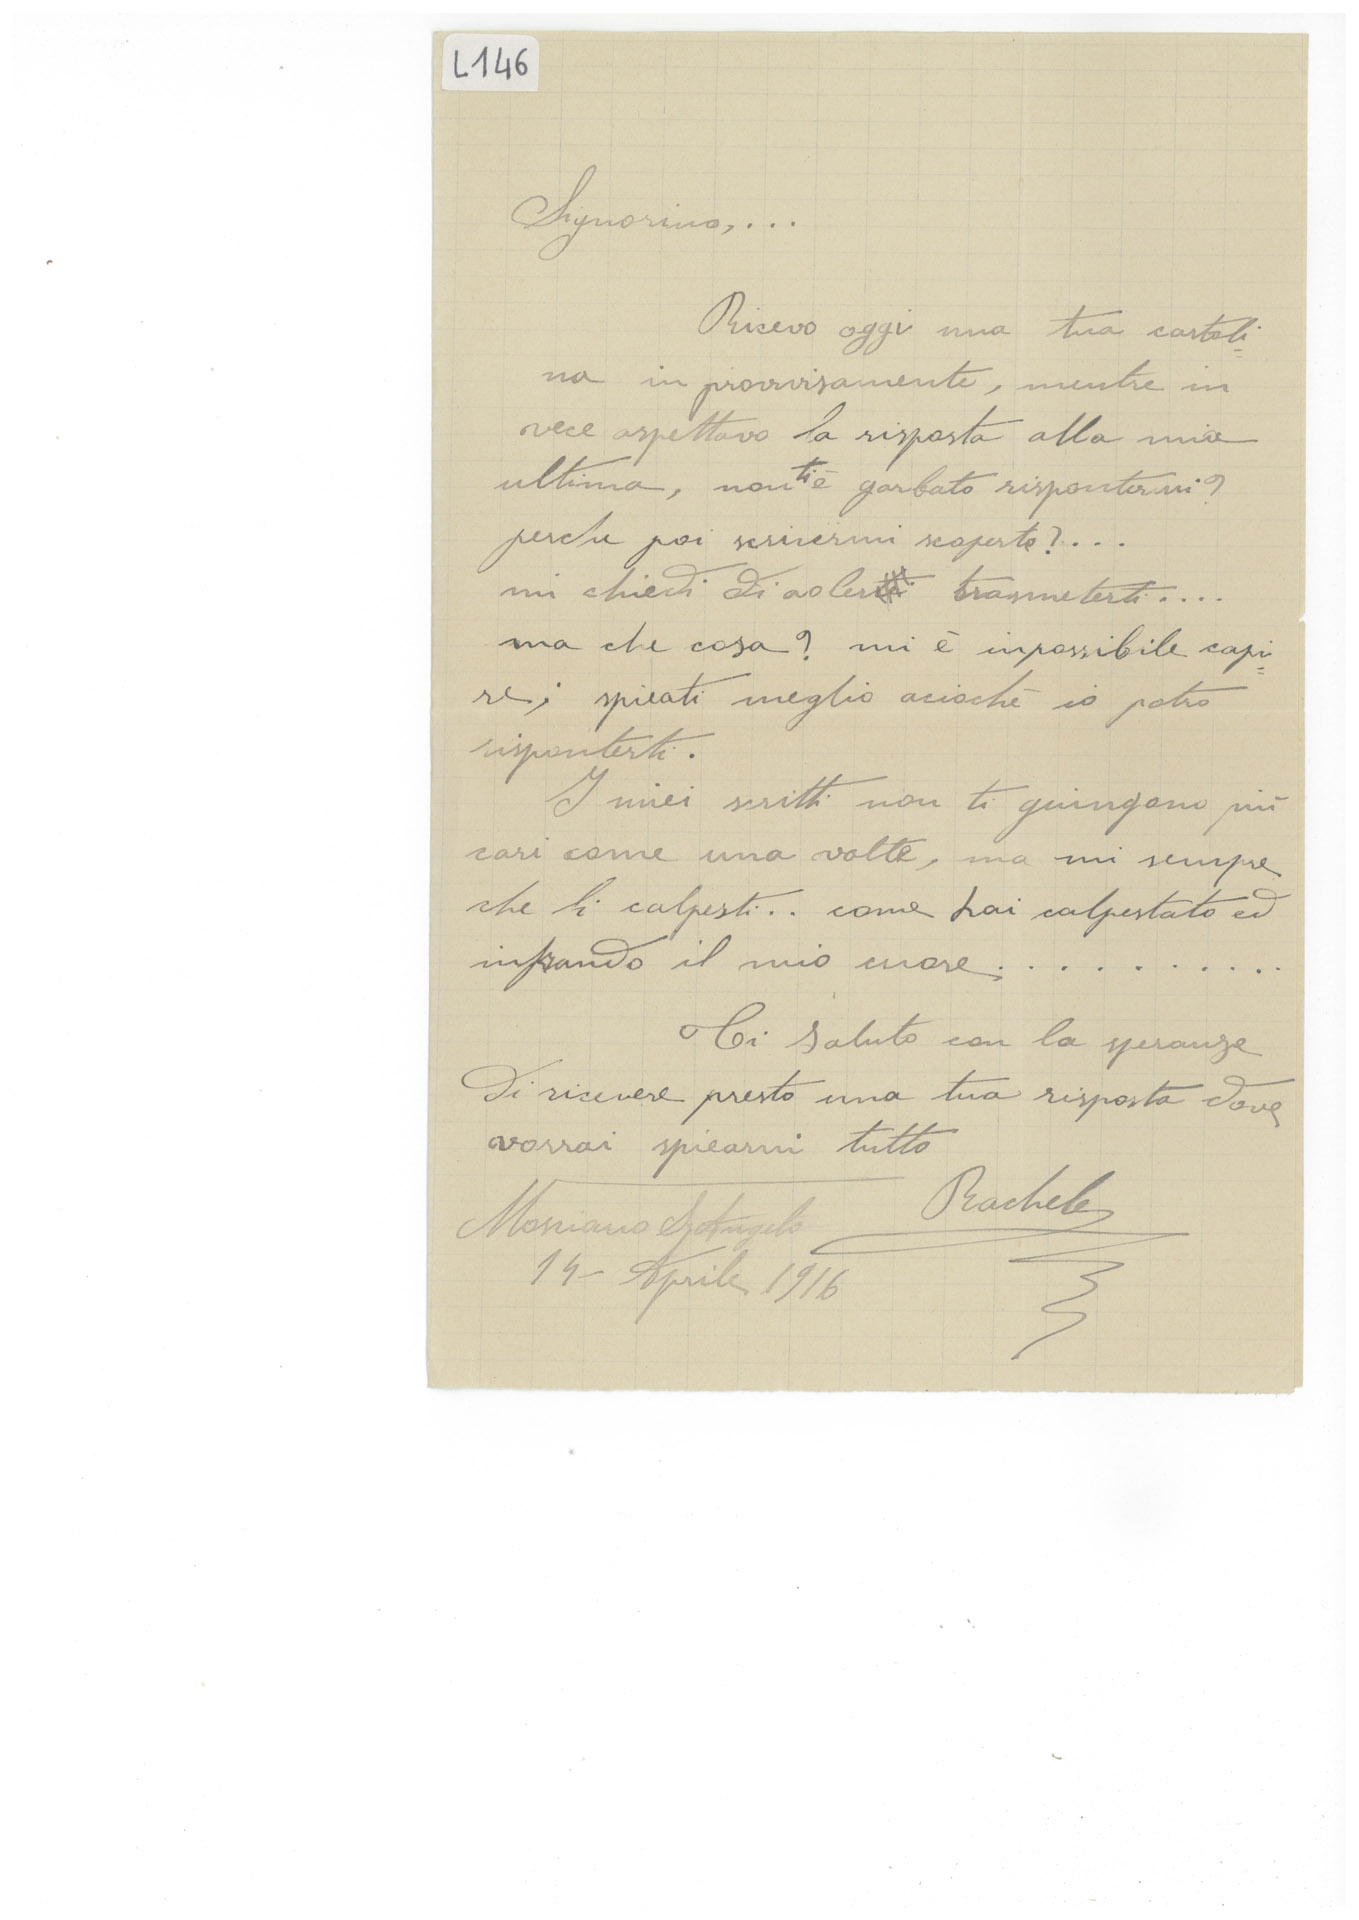 L146
Signorino,...
Ricevo oggi una tua cartoli=
na in provvisamente, mentre in
vece aspettavo la risposta alla mia
ultima, non ti è garbato rispontermi?
perche poi scrivermi scoperto?...
mi chiedi di voler trasmeterti....
ma che cosa? mi è inpossibile capi=
re; spicati meglio aciochè io potro
risponterti.
I miei scritti non ti guingono più
cari come una volta, ma mi sempre
che li calpesti.. come hai calpestato ed
infrando il mio cuore...........
Ti saluto con la speranza
di ricevere presto una tua risposta dove
vorrai spicarmi tutto
Rachele
Mosciano S. Angelo
14- Aprile 1916